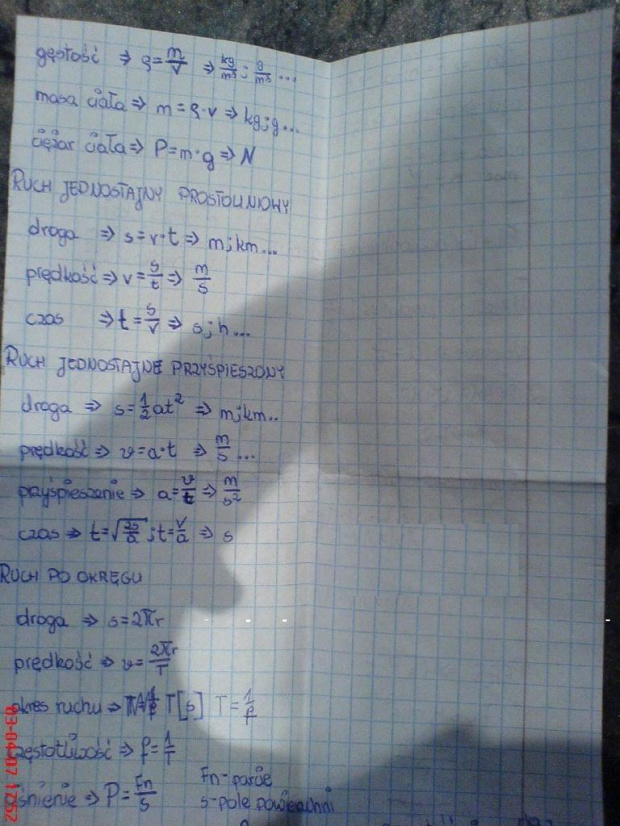 gęstość ⇒ ρ = m/V ⇒ kg/m³ ; g/m³ ...
masa ciała ⇒ m = ρ·v ⇒ kg;g...
ciężar ciała ⇒ P = m·g ⇒ N
RUCH JEDNOSTAJNY PROSTOLINIOWY
droga ⇒ s = v·t ⇒ m;km...
prędkość ⇒ v = s/t ⇒ m/s
czas ⇒ t = s/v ⇒ s;h...
RUCH JEDNOSTAJNE PRZYŚPIESZONY
droga ⇒ s = 1/2 at² ⇒ m;km..
prędkość ⇒ v = a·t ⇒ m/s ...
przyśpieszenie ⇒ a = v/t ⇒ m/s²
czas ⇒ t = √(2s/a) ; t = v/a ⇒ s
RUCH PO OKRĘGU
droga ⇒ s = 2πr
prędkość ⇒ v = 2πr/T
okres ruchu ⇒ T[s] T = 1/f
częstotliwość ⇒ f = 1/T
ciśnienie ⇒ P = Fn/S Fn - parcie
s - pole powierzchni
03-04-07 17:52